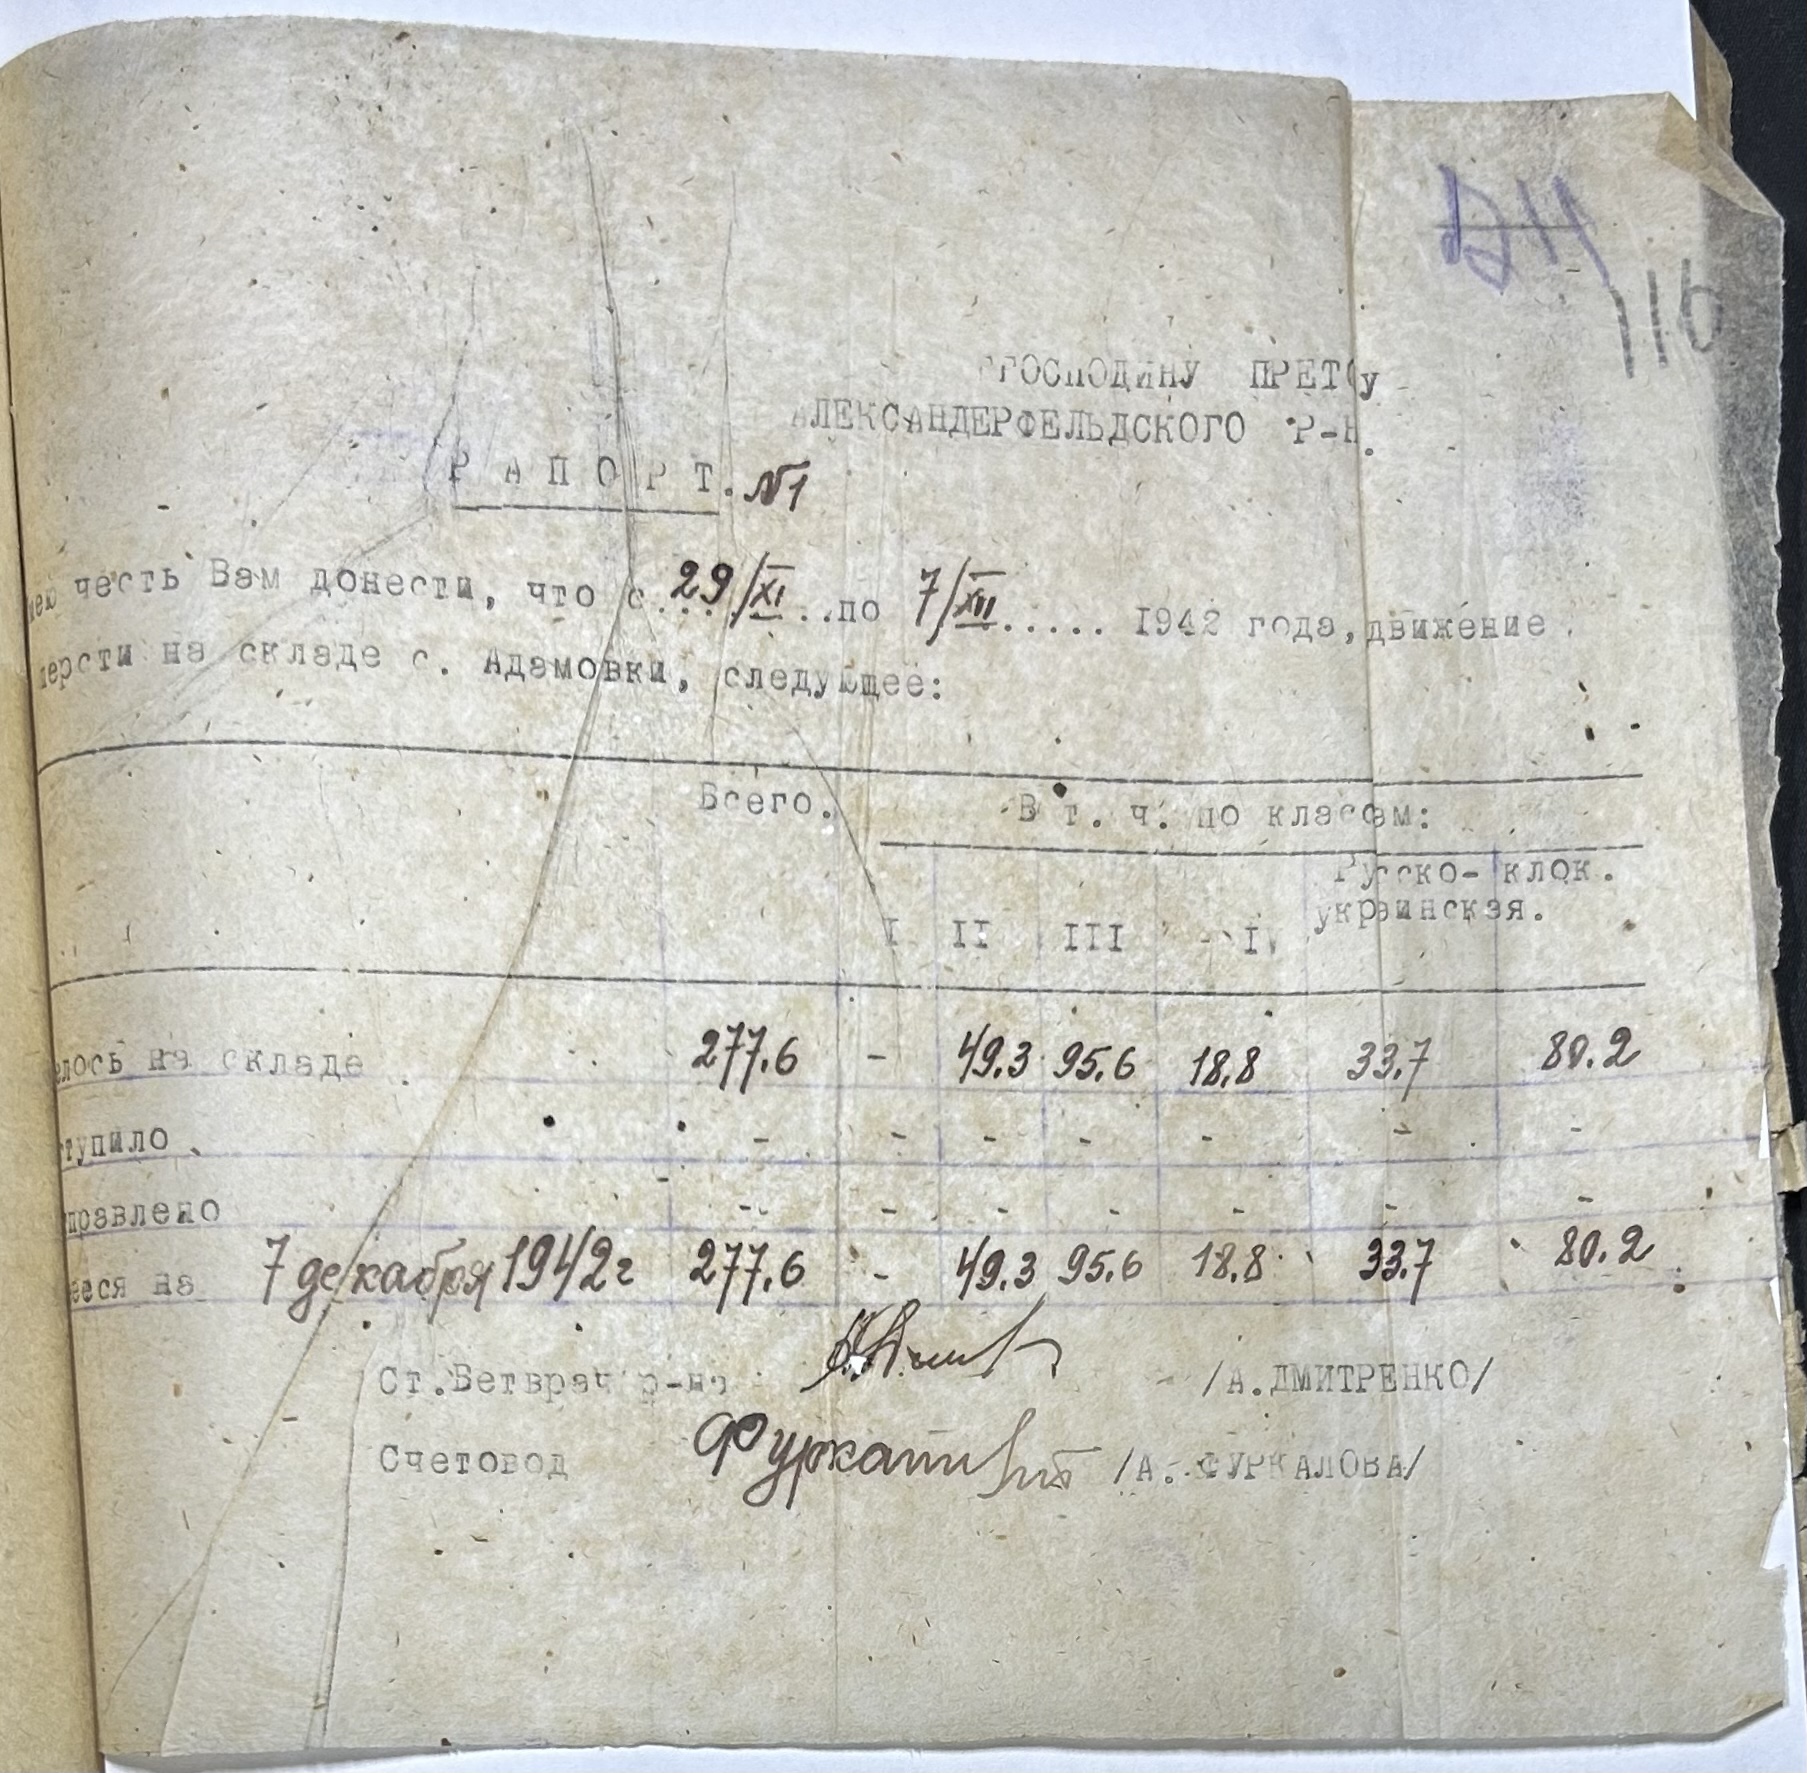 116
ГОСПОДИНУ ПРЕТОу
АЛЕКСАНДЕРФЕЛЬДСКОГО Р-Н.
Р А П О Р Т. №1
мею честь Вам донести, что с....29/XI...по 7/XII..... 1942 года, движение
шерсти на складе с. Адамовки, следующее:
Всего. В т. ч. по класам:
I II III IV Русско- клок.
украинская.
елось на складе 277.6 - 49.3 95.6 18.8 33.7 80.2
ступило - - - - - - -
правлено - - - - - - -
ееся на 7 декабря 1942 г 277.6 - 49.3 95.6 18.8 33.7 80.2
Ст.Ветврач р-на /А.ДМИТРЕНКО/
Счетовод /А. ФУРКАЛОВА/